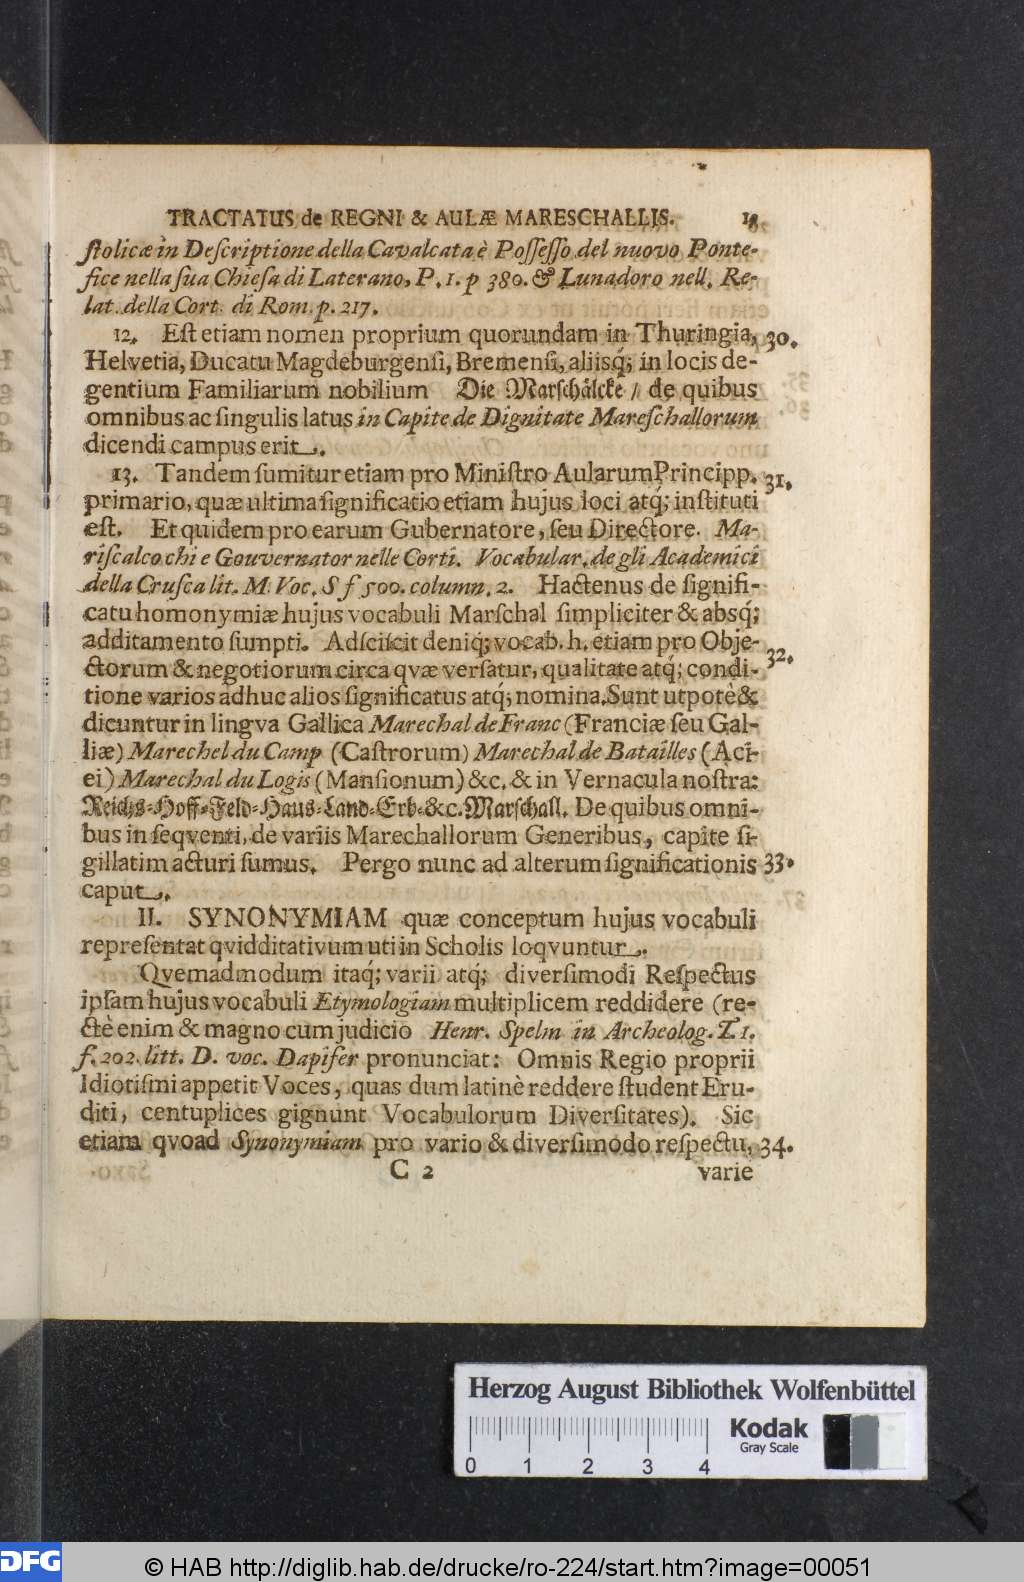 TRACTATUS de REGNI & AULÆ MARESCHALLIS.
ſtolicæ in Deſcriptione della Cavalcata è Poſſeſſo del nuovo Ponte-
fice nella ſua Chieſa di Laterano, P. 1. p 380. & Lunadoro nell. Re-
lat. della Cort. di Rom. p. 217.
12. Eſt etiam nomen proprium quorundam in Thuringia, 30.
Helvetia, Ducatu Magdeburgenſi, Bremenſi, aliisq́; in locis de-
gentium Familiarum nobilium Die Marſchälcke / de quibus
omnibus ac ſingulis latus in Capite de Dignitate Mareſchallorum
dicendi campus erit.
13. Tandem ſumitur etiam pro Miniſtro Aularum Principp. 31.
primario, quæ ultima ſignificatio etiam hujus loci atq́; inſtituti
eſt. Et quidem pro earum Gubernatore, ſeu Directore. Ma-
riſcalco chi e Gouvernator nelle Corti. Vocabular. de gli Academici
della Cruſca lit. M. Voc. S f 500. column. 2. Hactenus de ſignifi-
catu homonymiæ hujus vocabuli Marſchal ſimpliciter & absq́;
additamento ſumpti. Adſciſcit deniq́; vocab. h. etiam pro Obje-
ctorum & negotiorum circa qvæ verſatur, qualitate atq́; condi- 32.
tione varios adhuc alios ſignificatus atq́; nomina. Sunt utpotè &
dicuntur in lingva Gallica Marechal de Franc (Franciæ ſeu Gal-
liæ) Marechel du Camp (Caſtrorum) Marechal de Batailles (Aci-
ei) Marechal du Logis (Manſionum) &c. & in Vernacula noſtra:
Reichs-Hoff-Feld-Haus-Land-Erb-&c. Marſchall. De quibus omni-
bus in ſeqventi, de variis Marechallorum Generibus, capite ſi-
gillatim acturi ſumus. Pergo nunc ad alterum ſignificationis 33.
caput.
II. SYNONYMIAM quæ conceptum hujus vocabuli
repreſentat qvidditativum uti in Scholis loqvuntur.
Qvemadmodum itaq́; varii atq́; diverſimodi Reſpectus
ipſam hujus vocabuli Etymologiam multiplicem reddidere (re-
ctè enim & magno cum judicio Henr. Spelm in Archeolog. T. 1.
f. 202. litt. D. voc. Dapifer pronunciat: Omnis Regio proprii
Idiotiſmi appetit Voces, quas dum latinè reddere ſtudent Eru-
diti, centuplices gignunt Vocabulorum Diverſitates). Sic
etiam qvoad Synonymiam pro vario & diverſimodo reſpectu, 34.
C 2 varie
Herzog August Bibliothek Wolfenbüttel
Kodak
Gray Scale
0 1 2 3 4
DFG © HAB http://diglib.hab.de/drucke/ro-224/start.htm?image=00051